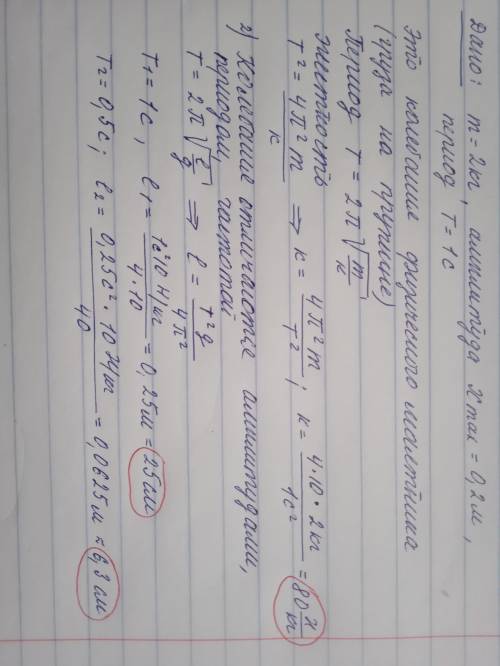 Дано: m = 2 кг, амплитуда Xmax = 0,2 м,
период T = 1 с
Это колебание физического маятника
(груза на пружине)
Период T = 2π√(m/к)
жесткость
T² = 4π²m/к ⇒ к = 4π²m/T²; к = 4·10·2кг/1с² = 80 Н/кг
2) Колебание отличаются амплитудами,
периодом, частотой
T = 2π√(ℓ/g) ⇒ ℓ = T²g/4π²
T1 = 1с, ℓ1 = 1с²10 Н/кг/4·10 = 0,25м = 25см
T2 = 0,5с; ℓ2 = 0,25с²·10 Н/кг/40 = 0,0625м ≈ 6,3см